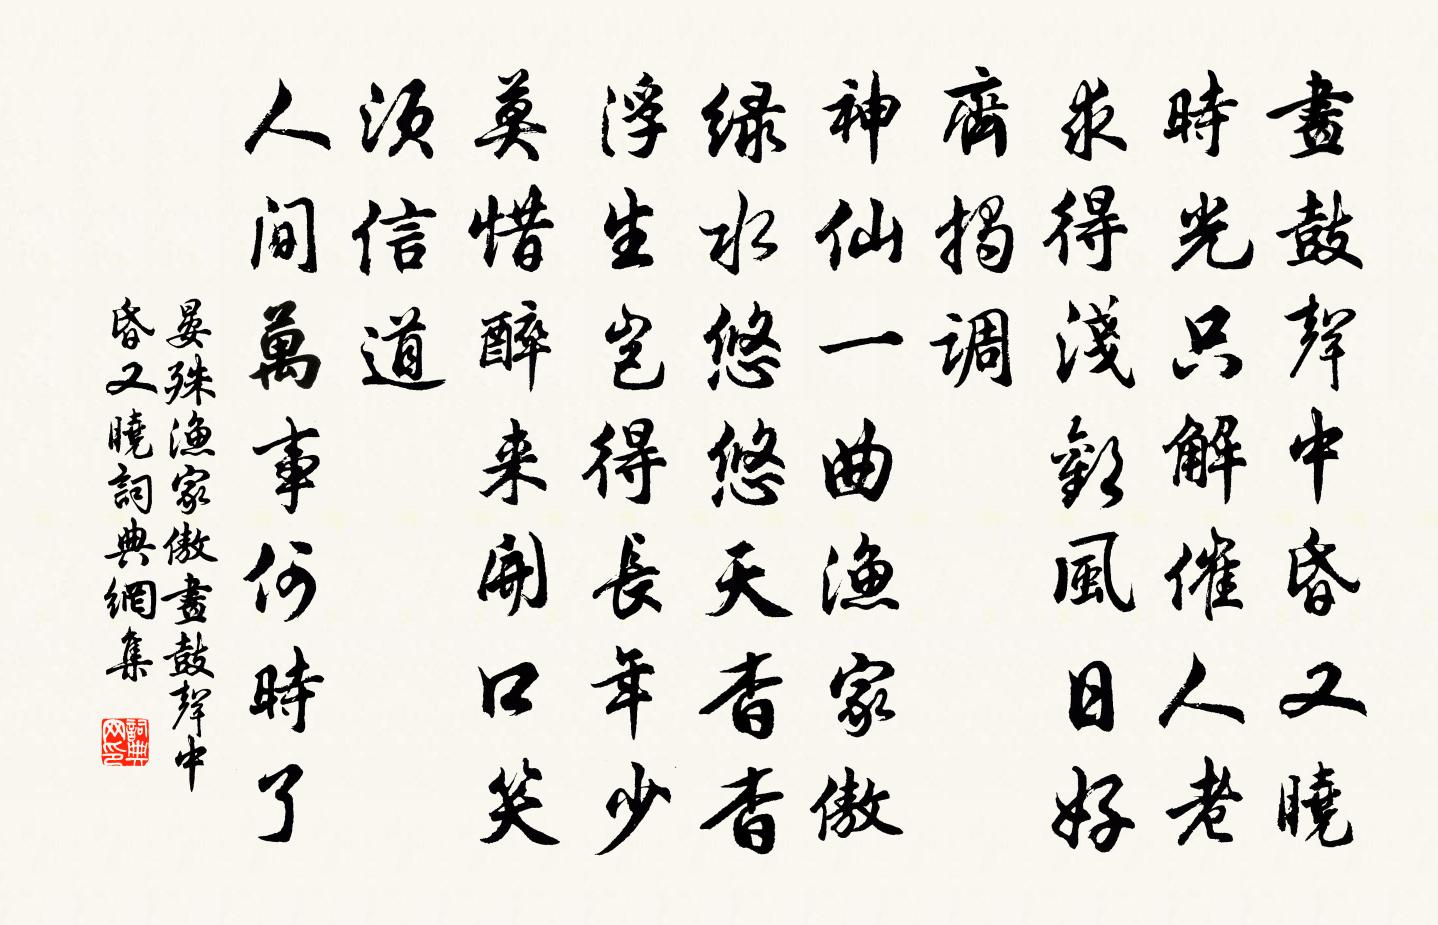 畫鼓聲中昏又曉
時光只解催人老
求得淺歡風日好
齊揭調
神仙一曲漁家傲
緑水悠悠天杳杳
浮生豈得長年少
莫惜醉来開口笑
須信道
人間萬事何時了
晏殊漁家傲畫鼓聲中
昏又曉詞典網集
詞典网印